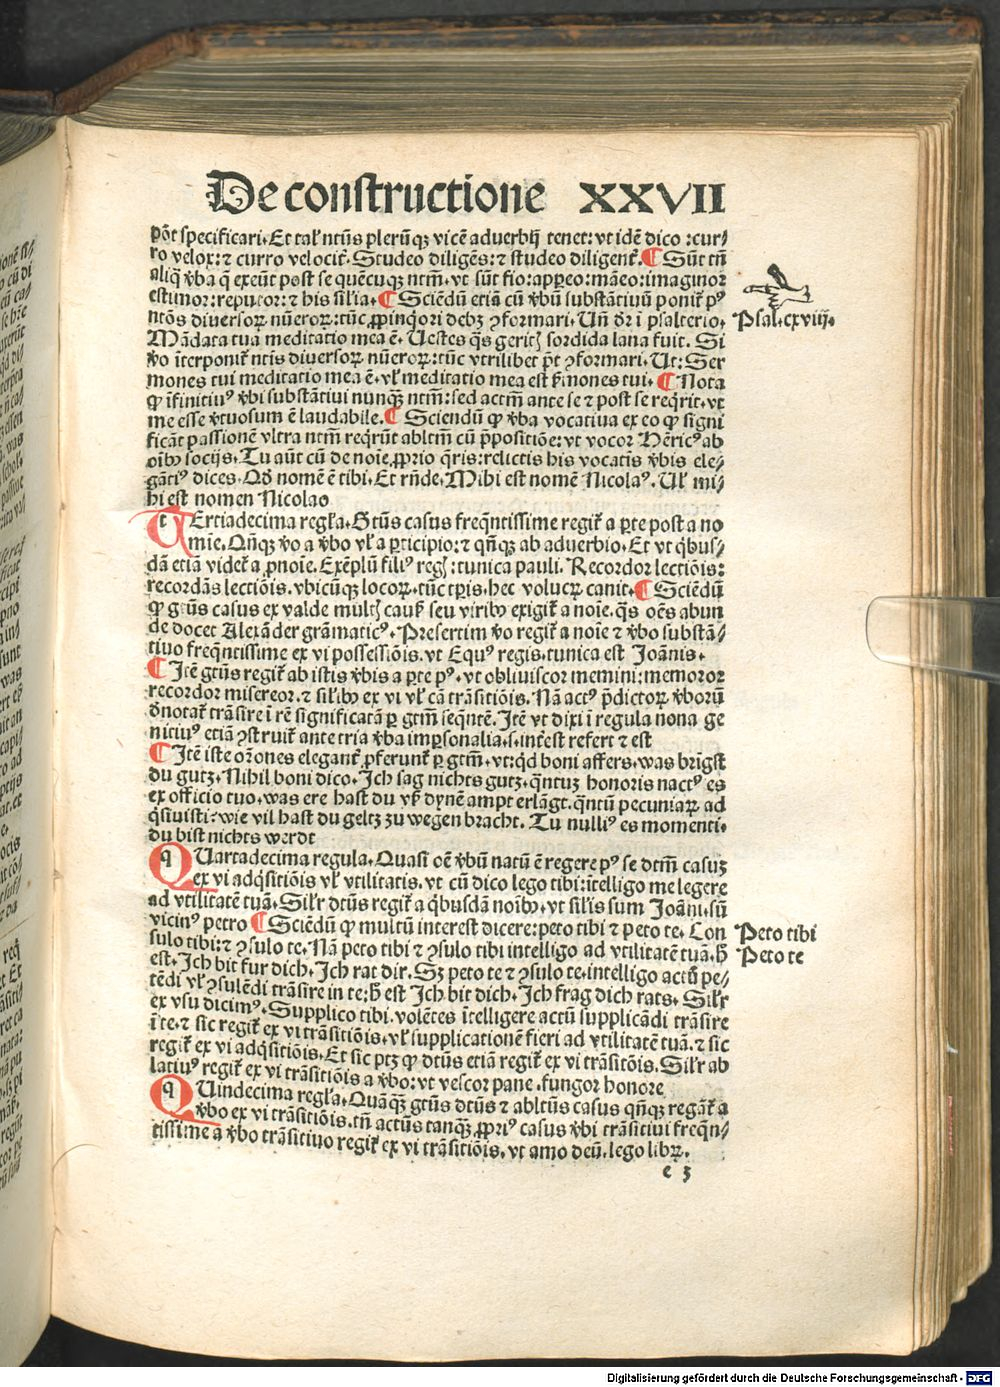 De constructione XXVII
põt specificari. Et tal̃ ntũs plerũqꝫ vicẽ aduerbij tenet: vt idẽ dico :cur⸗
ro velox: ⁊ curro velocit̃. Studeo diligẽs: ⁊ studeo diligent̃. ¶ Sũt tñ
aliq̃ v̓ba q̃ exeũt post se quẽcuqꝫ ntm̃. vt sũt fio: appeo: mãeo: imaginor
estimor: reputor: ⁊ his sil̃ia. ¶ Sciẽdũ etiã cũ v̓bũ substãtiuũ ponit̃ pꝰ
ntõs diuersoꝝ nũeroꝝ: tũc ꝓpinq̃ori debꝫ ꝯformari. Uñ dr̃ ĩ psalterio.
Psal. cxviij.
Mãdata tua meditatio mea ẽ. Uestes q̃s gerit sordida lana fuit. Si
v̓o ĩterponit̃ ntis diuersoꝝ nũeroꝝ: tũc vtrilibet pt̃ ꝯformari. Ut: Ser
mones tui meditatio mea ẽ. vl̃ meditatio mea est s̃mones tui. ¶ Nota
ꝙ ĩfinitiuꝰ v̓bi substãtiui nunqꝫ ntm̃: sed actm̃ ante se ⁊ post se req̃rit. vt
me esse v̓tuosum ẽ laudabile. ¶ Sciendũ ꝙ v̓ba vocatiua ex eo ꝙ signi
ficãt passionẽ vltra ntm̃ req̃rũt abltm̃ cũ p̃positiõe: vt vocor Hẽricꝰ ab
oĩbꝰ socijs. Tu aũt cũ de noĩe ꝓprio q̃ris: relictis his vocatis v̓bis ele⸗
gãtiꝰ dices. Qđ nomẽ ẽ tibi. Et rñde. Mihi est nomẽ Nicolaꝰ. Ul̃ mi⸗
hi est nomen Nicolao
tErtiadecima regl̃a. Gtũs casus freq̃ntissime regit̃ a ꝑte post a no
mĩe. Qñqꝫ v̓o a v̓bo vl̃ a ꝑticipio: ⁊ qñqꝫ ab aduerbio. Et vt q̃bus⸗
dã etiã videt̃ a ꝓnoĩe. Exẽplũ filiꝰ reg: tunica pauli. Recordor lectiõis:
recordãs lectiõis. vbicũqꝫ locoꝝ. tũc tꝑis. hec volucꝝ canit. ¶ Sciẽdũ
ꝙ gtũs casus ex valde mult causĩ seu viribꝰ exigit̃ a noĩe. q̃s oẽs abun
de docet Alexãder grãmaticꝰ. Presertim v̓o regit̃ a noĩe ⁊ v̓bo substã⸗
tiuo freq̃ntissime ex vi possessiõis. vt Equꝰ regis. tunica est Joãnis.
¶ Jtẽ gtũs regit̃ ab istis v̓bis a ꝑte pꝰ. vt obliuiscor memini: memoror
recordor misereor. ⁊ sil̃ibꝰ ex vi vl̃ cã trãsitiõis. Nã actꝰ p̃dictoꝝ v̓borũ
đnotat̃ trãsire ĩ rẽ significatã ꝑ gtm̃ seq̃ntẽ. Jtẽ vt dixi ĩ regula nona ge
nitiuꝰ etiã ꝯstruit̃ ante tria v̓ba imꝑsonalia. s. inter̃est refert ⁊ est
¶ Jtẽ iste or̃ones elegant̃ ꝓferunt̃ ꝑ gtm̃. vt: q̃d boni affers. was brigst
du gutꝫ. Nihil boni dico. Jch sag nichts gutꝫ. q̃ntuꝫ honoris nactꝰ es
ex officio tuo. was ere hast du vſ̃ dynẽ ampt erlãgt. q̃ntũ pecuniaꝝ ad
q̃siuisti? wie vil hast du geltꝫ zu wegen bracht. Tu nulliꝰ es momenti.
du bist nichts werdt
qUartadecima regula. Quasi oẽ v̓bũ natũ ẽ regere pꝰ se dtm̃ casuꝫ
ex vi adq̃sitiõis vl̃ vtilitatis. vt cũ dico lego tibi: ĩtelligo me legere
ad vtilitatẽ tuã. Sil̃r dtũs regit̃ a q̃busdã noĩbꝰ. vt sil̃is sum Joãni. sũ
vicinꝰ petro ¶ Sciẽdũ ꝙ multũ interest dicere: peto tibi ⁊ peto te. Con
Peto tibi
sulo tibi: ⁊ ꝯsulo te. Nã peto tibi ⁊ ꝯsulo tibi intelligo ad vtilitatẽ tuã. h̃
Peto te
est. Jch bit fur dich. Jch rat dir. Sꝫ peto te ⁊ ꝯsulo te. intelligo actũ pe⸗
tẽdi vl̃ ꝯsulẽdi trãsire in te: h̃ est Jch bit dich. Jch frag dich rats. Sil̃r
ex vsu dicimꝰ. Supplico tibi. volẽtes ĩtelligere actũ supplicãdi trãsire
ĩ te. ⁊ sic regit̃ ex vi trãsitiõis. vl̃ supplicationẽ fieri ad vtilitatẽ tuã. ⁊ sic
regit̃ ex vi adq̃sitiõis. Et sic ptꝫ ꝙ dtũs etiã regit̃ ex vi trãsitiõis. Sil̃r ab
latiuꝰ regit̃ ex vi trãsitiõis a v̓bo: vt vescor pane. fungor honore
qUindecima regl̃a. Quãqꝫ gtũs dtũs ⁊ abltũs casus qñqꝫ regãt̃ a
v̓bo ex vi trãsitiõis. tñ actũs tanqꝫ ꝓpriꝰ casus v̓bi trãsitiui freq̃n⸗
tissime a v̓bo trãsitiuo regit̃ ex vi trãsitiõis. vt amo deũ. lego libꝝ.
e 3
Digitalisierung gefördert durch die Deutsche Forschungsgemeinschaft - DFG